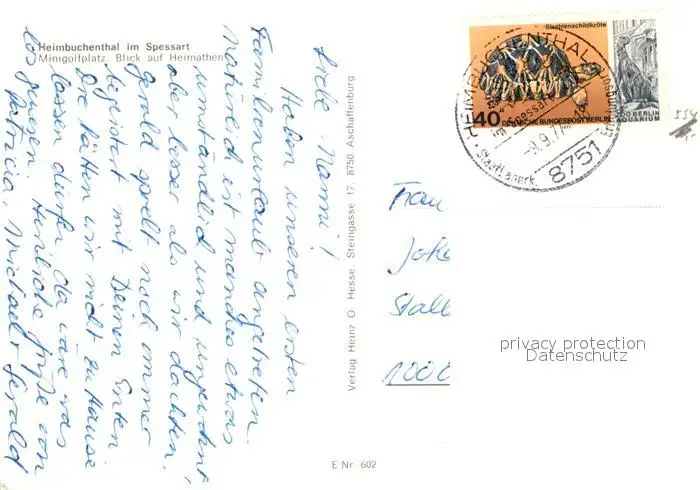 Heimbuchenthal im Spessart
Minigolfplatz. Blick auf Heimathen
Liebe Mommi!
Haben unseren ersten
Familienurlaub angetreten.
Natürlich ist manches etwas
umständlich und ungewohnt,
aber besser als wir dachten.
Gerald spielt noch immer
begeistert mit Deinen Enten.
Die hätten wir nicht zu Hause
lassen dürfen, da wäre was
los gewesen. Herzliche Grüße von
Patricia, Michael + Gerald
Verlag Heinz O. Hesse Steingasse 17, 8750 Aschaffenburg
E Nr 602
Strahlenschildkröte
40
DEUTSCHE BUNDESPOST BERLIN
1977
ZOO BERLIN
AQUARIUM
HEIMBUCHENTHAL
im Spessart
-9.9.77
8751
Staatl. anerk.
554
Frau
Stall
privacy protection
Datenschutz